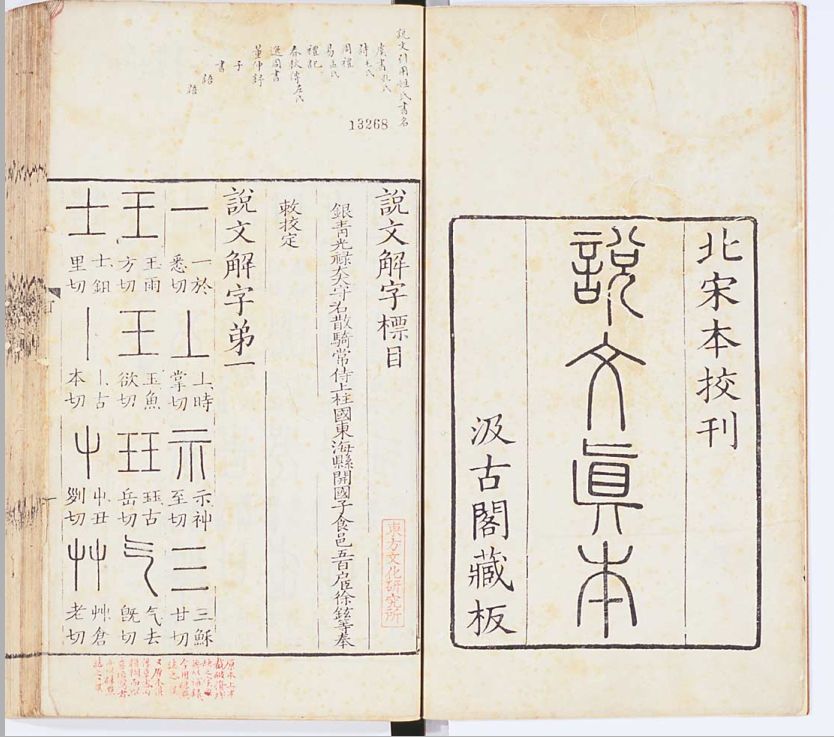 北宋本挍刊
說文眞本
汲古閣藏板
說文引用姓氏書名
虞書孔氏
詩毛氏
周禮
易孟氏
禮記
春秋傳左氏
逸周書
董仲舒
子
書
語
語
13268
說文解字標目
銀青光祿大夫守右散騎常侍上柱國東海縣開國子食邑五百戶臣徐鉉等奉
敕挍定
東方文化研究所
說文解字弟一
一 一於悉切 丄 丄時掌切 示 示神至切 三 三穌甘切
王 王雨方切 玉 玉魚欲切 玨 玨古岳切 气 气去旣切
士 士鉏里切 丨 丨古本切 屮 屮丑劉切 艸 艸倉老切